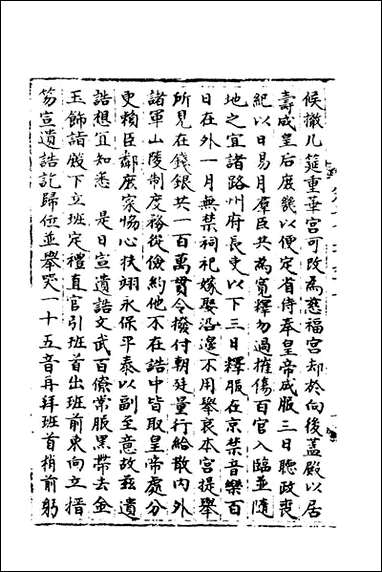 候撤几筵重華宮可改為慈福宮却於向後蓋殿以居
壽成皇后庶幾以便定省侍奉皇帝成服三日聽政喪
紀以日易月羣臣共為寬釋勿過摧傷百官入臨並隨
地之宜諸路州府長吏以下三日釋服在京禁音樂百
日在外一月無禁祠祀嫁娶沿邊不用舉哀本宮提舉
所見在錢銀共一百萬貫令撥付朝廷量行給散內外
諸軍山陵制度務從儉約他不在誥中皆取皇帝處分
更賴臣鄰庶家恊心扶翊永保平泰以副至意故玆遺
誥想宜知悉 是日宣遺誥文武百僚常服黑帶去金
玉飾詣殿下立班定禮直官引班首出班前東向立搢
笏宣遺誥訖歸位並舉哭一十五音再拜班首稍前躬